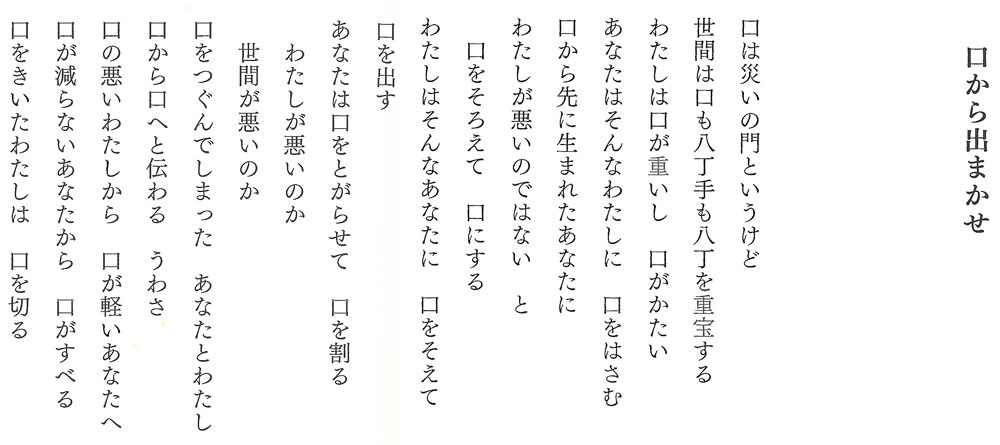 口から出まかせ
口は災いの門というけど
世間は口も八丁手も八丁を重宝する
わたしは口が重いし　口がかたい
あなたはそんなわたしに　口をはさむ
口から先に生まれたあなたに
わたしが悪いのではない　と
口をそろえて　口にする
わたしはそんなあなたに　口をそえて
口を出す
あなたは口をとがらせて　口を割る
わたしが悪いのか
世間が悪いのか
口をつぐんでしまった　あなたとわたし
口から口へと伝わる　うわさ
口の悪いわたしから　口が軽いあなたへ
口が減らないあなたから　口がすべる
口をきいたわたしは　口を切る